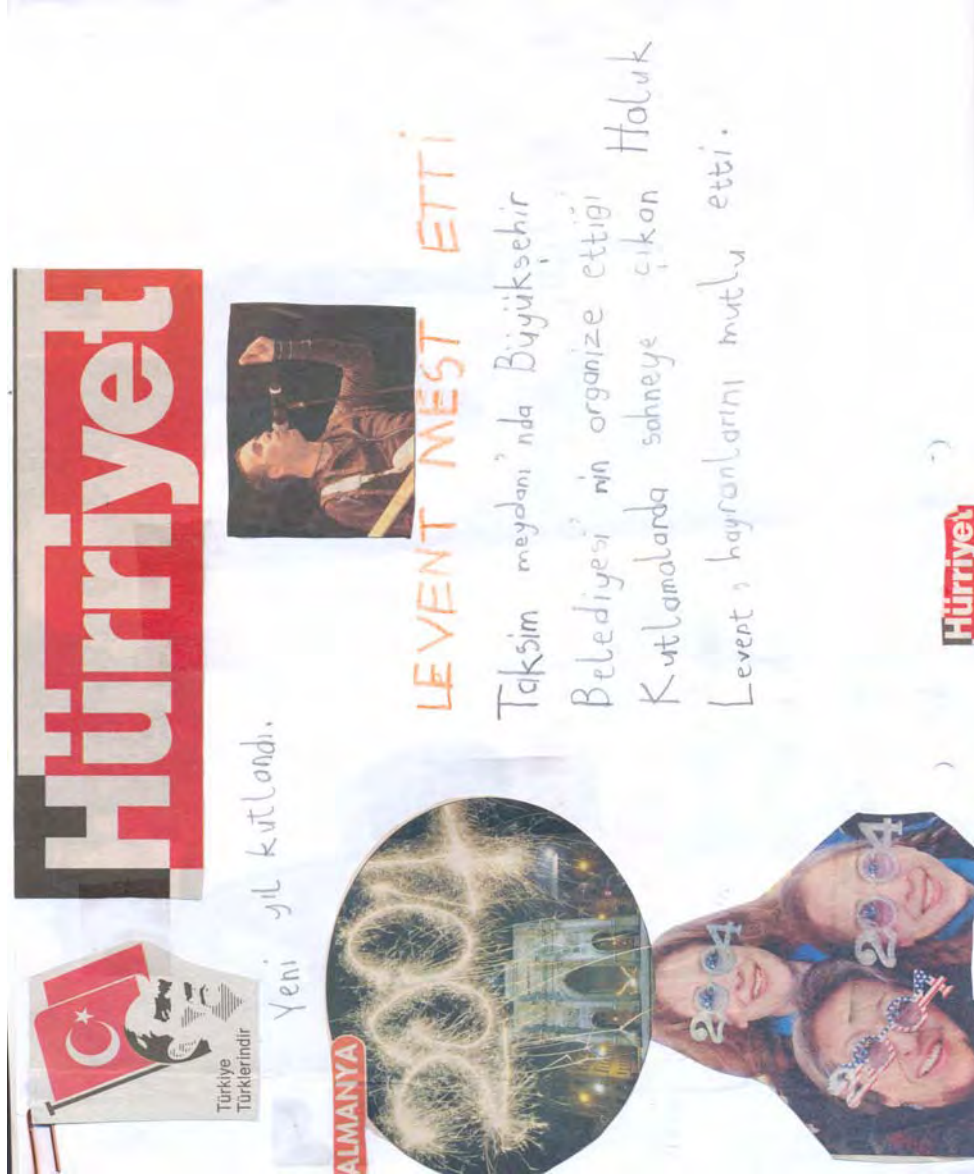 Türkiye
Türklerindir
Hürriyet
Yeni yıl kutlandı.
ALMANYA
2004
LEVENT MEST ETTİ
Taksim meydanı'nda Büyükşehir
Belediyesi'nin organize ettiği
Kutlamalarda sahneye çıkan Haluk
Levent, hayranlarını mutlu etti.
2004
2004
Hürriyet